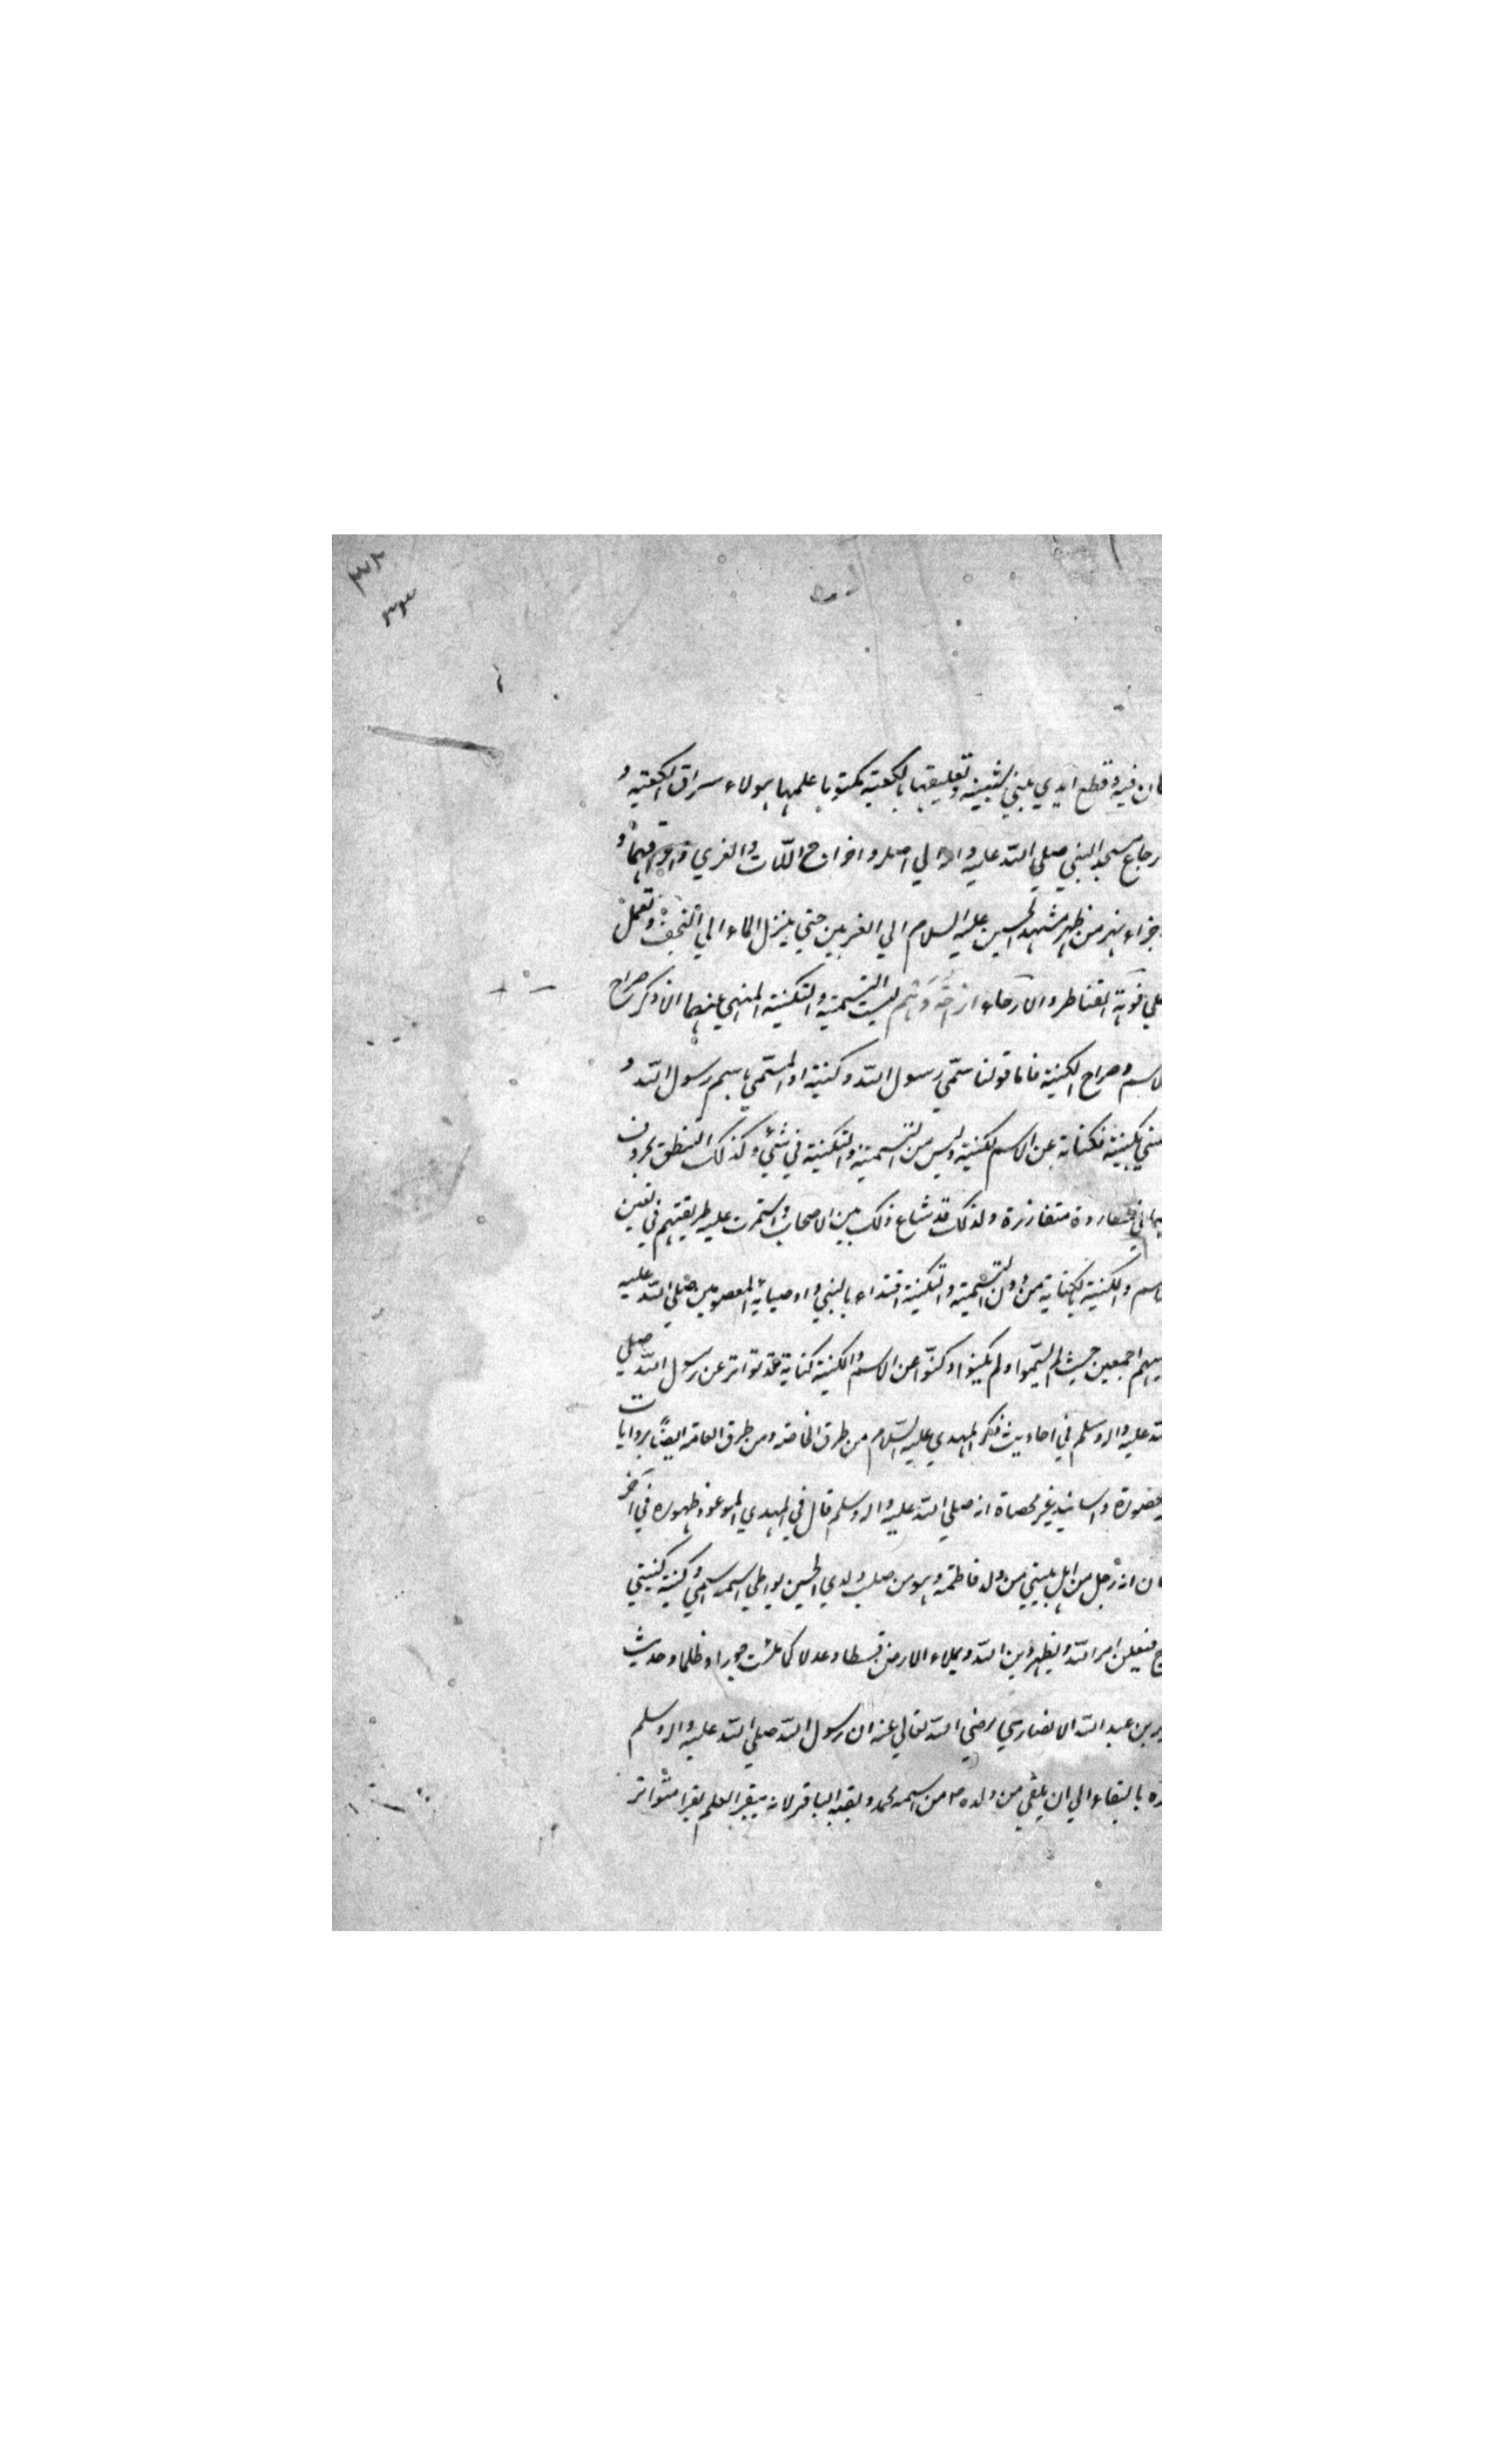 ٣٢
٣٣
كان فيه وقطع ايدي بني شيبه وتعليقها بالكعبة مكتوبا عليها هولاء سراق الكعبة و
رجاع مسجد النبي صلي الله عليه واله الي اصله واخراج اللات والعزي واحراقهما و
جراء نهر من ظهر مشهد الحسين عليه السلام الي الغريين حتي ينزل الماء الي النجف وتعمل
علي فوهة القناطر والارحاء ليست التسمية والتكنية المنهي عنهما الا ذكر صراح
الاسم وصراح الكنية فاما قولنا سمّي رسول الله وكنيه او المسمي باسم رسول الله و
مكني بكنيته فكناية عن الاسم والكنية وليس من التسمية والتكنية في شئ وكذلك التنطق بحروف
متفارزة ولذلك قد شاع ذلك بين الاصحاب واستمرت عليه طريقتهم في تعيين
الاسم والكنية بالكناية من دون التسمية والتكنية اقتداء بالنبي واوصيائه المعصومين صلي الله عليه
عليهم اجمعين حيث لم يسمّوا ولم يكنوا وكنّوا عن الاسم والكنية كناية فقد تواتر عن رسول الله صلي
الله عليه واله وسلم في احاديث ذكر المهدي عليه السلام من طرق الخاصة ومن طرق العامة ايضا بروايات
محصورة واسانيد غير محصاة انه صلي الله عليه واله وسلم قال في المهدي الموعود ظهوره في آخر
الزمان انه رجل من اهل بيتي من ولد فاطمة وهو من صلب ولدي الحسين يواطي اسمه اسمي وكنيته كنيتي
فيعلن امر الله ويظهر دين الله ويملاء الارض قسطا وعدلا كما ملئت جورا وظلما وحديث
جابر بن عبد الله الانصاري رضي الله تعالي عنه ان رسول الله صلي الله عليه واله وسلم
بالبقاء الي ان يلقي من ولده من اسمه محمد ولقبه الباقر لانه يبقر العلم بقرا متواتر